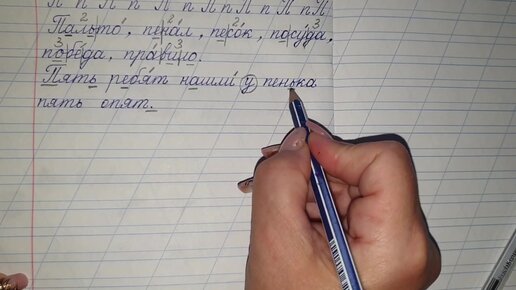 Пальто, пенал, песок, посуда,
победа, правило.
Пять ребят нашли у пенька
пять опят.